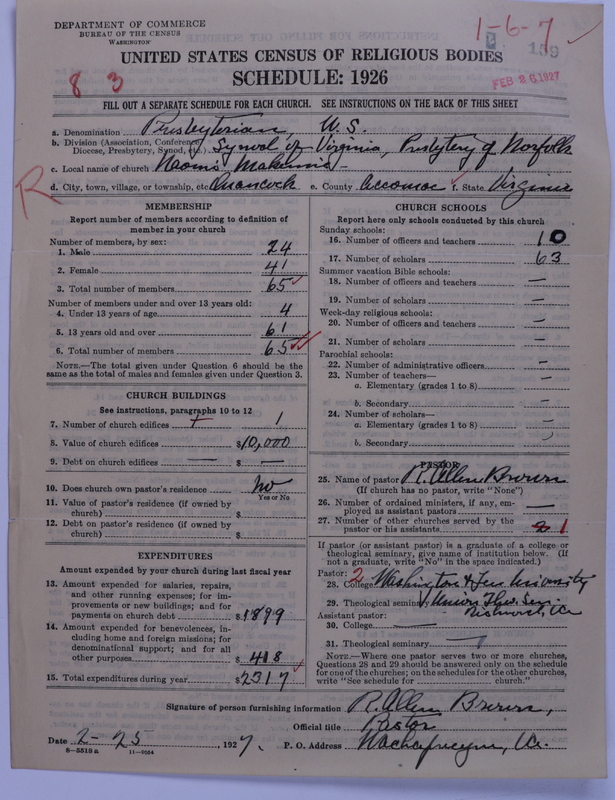 DEPARTMENT OF COMMERCE
BUREAU OF THE CENSUS
WASHINGTON
1-6-7
159
UNITED STATES CENSUS OF RELIGIOUS BODIES
SCHEDULE: 1926
8 3
FEB 26 1927
FILL OUT A SEPARATE SCHEDULE FOR EACH CHURCH. SEE INSTRUCTIONS ON THE BACK OF THIS SHEET
a. Denomination Presbyterian, U.S.
b. Division (Association, Conference, Diocese, Presbytery, Synod, etc.) Synod of Virginia, Presbytery of Norfolk
c. Local name of church Naomi Makemie
R
d. City, town, village, or township, etc. Onancock e. County Accomac f. State Virginia
MEMBERSHIP
Report number of members according to definition of member in your church
Number of members, by sex:
1. Male 24
2. Female 41
3. Total number of members 65
Number of members under and over 13 years old:
4. Under 13 years of age 4
5. 13 years old and over 61
6. Total number of members 65
NOTE.—The total given under Question 6 should be the same as the total of males and females given under Question 3.
CHURCH BUILDINGS
See instructions, paragraphs 10 to 12
7. Number of church edifices 1
8. Value of church edifices $10,000
9. Debt on church edifices — $ —
10. Does church own pastor's residence no
Yes or No
11. Value of pastor's residence (if owned by church) $
12. Debt on pastor's residence (if owned by church) $
EXPENDITURES
Amount expended by your church during last fiscal year
13. Amount expended for salaries, repairs, and other running expenses; for improvements or new buildings; and for payments on church debt $1899
14. Amount expended for benevolences, including home and foreign missions; for denominational support; and for all other purposes $ 418
15. Total expenditures during year $2317
CHURCH SCHOOLS
Report here only schools conducted by this church
Sunday schools:
16. Number of officers and teachers 10
17. Number of scholars 63
Summer vacation Bible schools:
18. Number of officers and teachers —
19. Number of scholars —
Week-day religious schools:
20. Number of officers and teachers —
21. Number of scholars —
Parochial schools:
22. Number of administrative officers —
23. Number of teachers—
a. Elementary (grades 1 to 8) —
b. Secondary —
24. Number of scholars—
a. Elementary (grades 1 to 8) —
b. Secondary
PASTOR
25. Name of pastor R. Allen Brown
(If church has no pastor, write "None")
26. Number of ordained ministers, if any, employed as assistant pastors —
27. Number of other churches served by the pastor or his assistants 1
If pastor (or assistant pastor) is a graduate of a college or theological seminary, give name of institution below. (If not a graduate, write "No" in the space indicated.)
Pastor: 2
28. College Washington & Lee University
29. Theological seminary Union Theo. Sem. Richmond, Va
Assistant pastor:
30. College —
31. Theological seminary —
NOTE.—Where one pastor serves two or more churches, Questions 28 and 29 should be answered only on the schedule for one of the churches; on the schedules for the other churches, write "See schedule for church."
Signature of person furnishing information R. Allen Brown,
Official title Pastor
Date 2-25, 1927. P. O. Address Wachapreague, Va.
8-5518a 11-9064